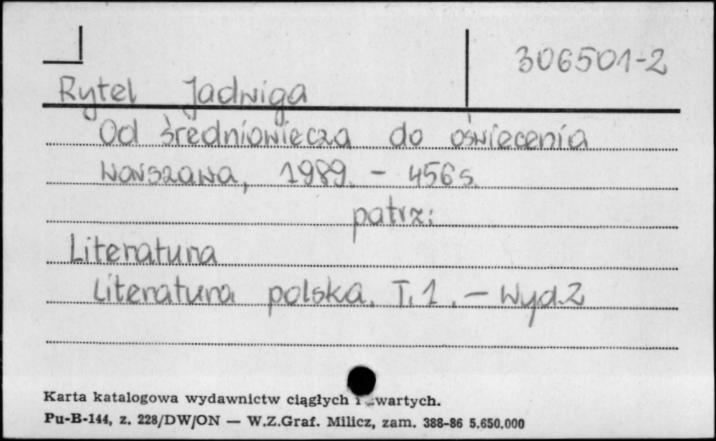 306501-2
Rytel Jadwiga
Od średniowiecza do oświecenia
Warszawa, 1989. - 456 s.
patrz:
Literatura
Literatura polska. T. 1. - Wyd. 2
Karta katalogowa wydawnictw ciągłych i zwartych.
Pu-B-144, z. 228/DW/ON — W.Z.Graf. Milicz, zam. 388-86 5.650.000